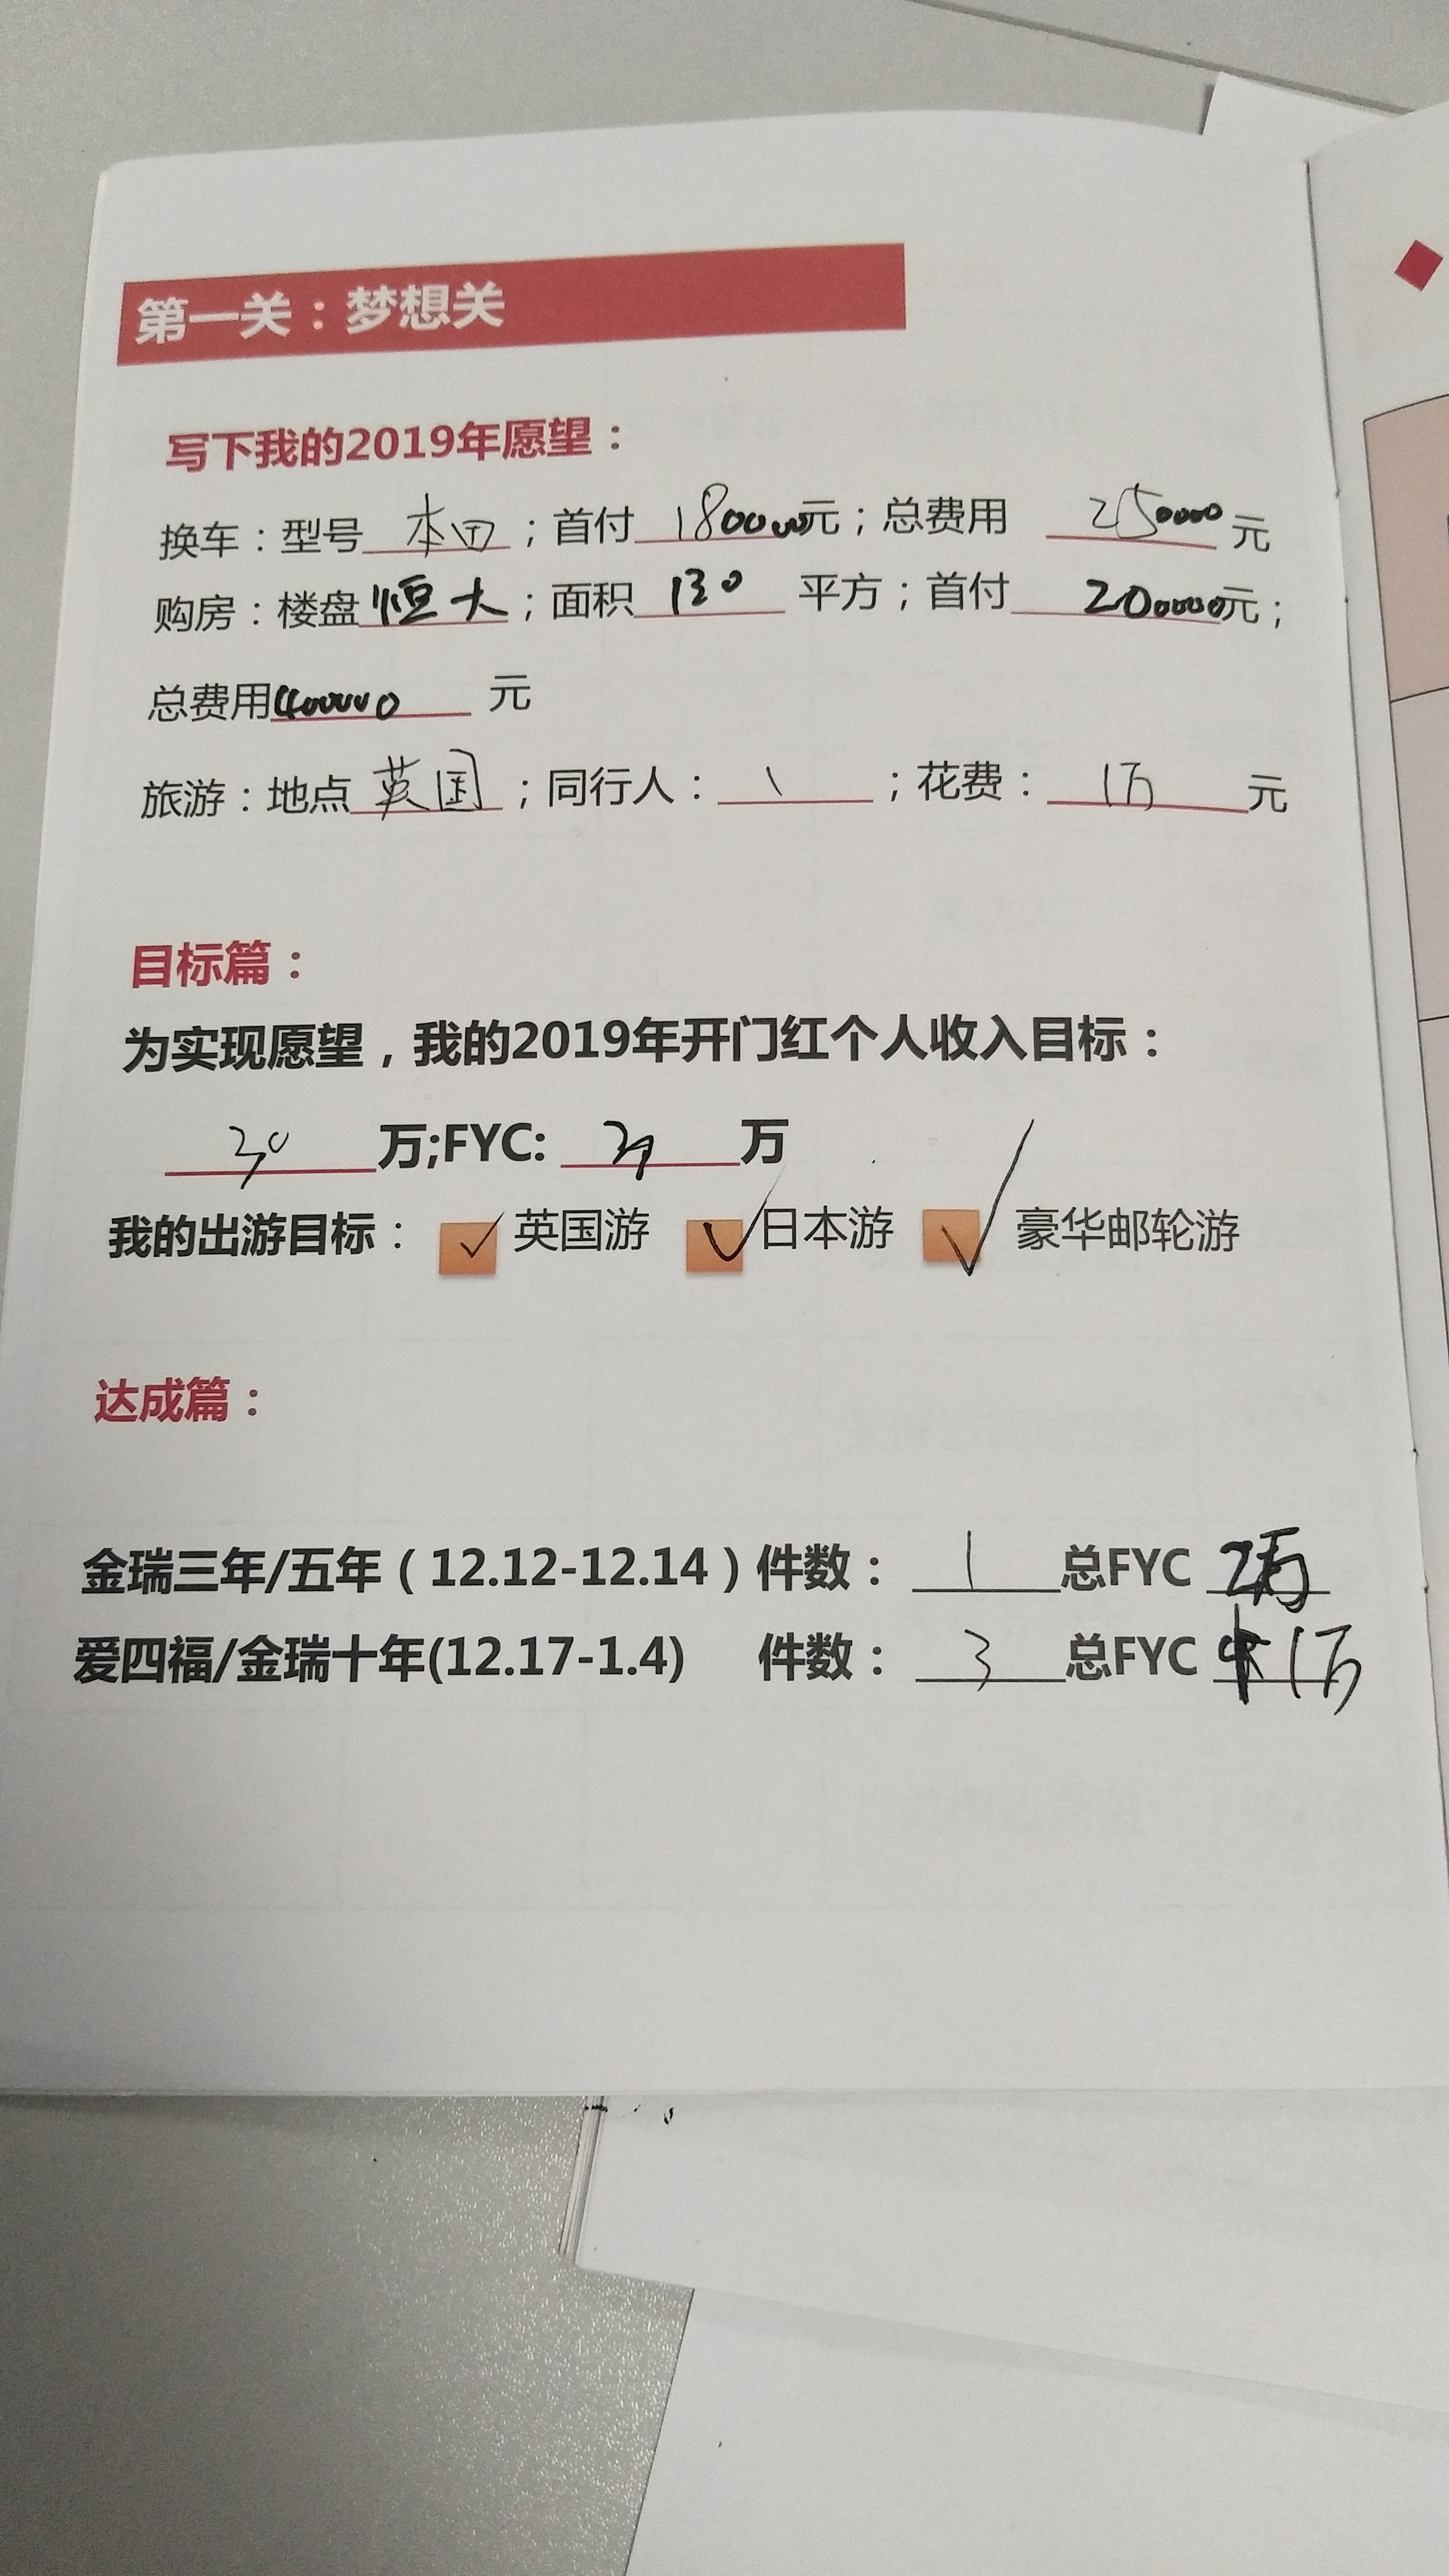 第一关：梦想关
写下我的2019年愿望：
换车：型号 本田 ；首付 180000元；总费用 250000 元
购房：楼盘恒大；面积 130 平方；首付 200000元；
总费用400000 元
旅游：地点 英国 ；同行人： 1 ；花费： 1万 元
目标篇：
为实现愿望，我的2019年开门红个人收入目标：
30 万;FYC: 万
我的出游目标： ✓ 英国游 ✓ 日本游 ✓ 豪华邮轮游
达成篇：
金瑞三年/五年（12.12-12.14）件数： 1 总FYC 2万
爱四福/金瑞十年(12.17-1.4) 件数： 3 总FYC 1万